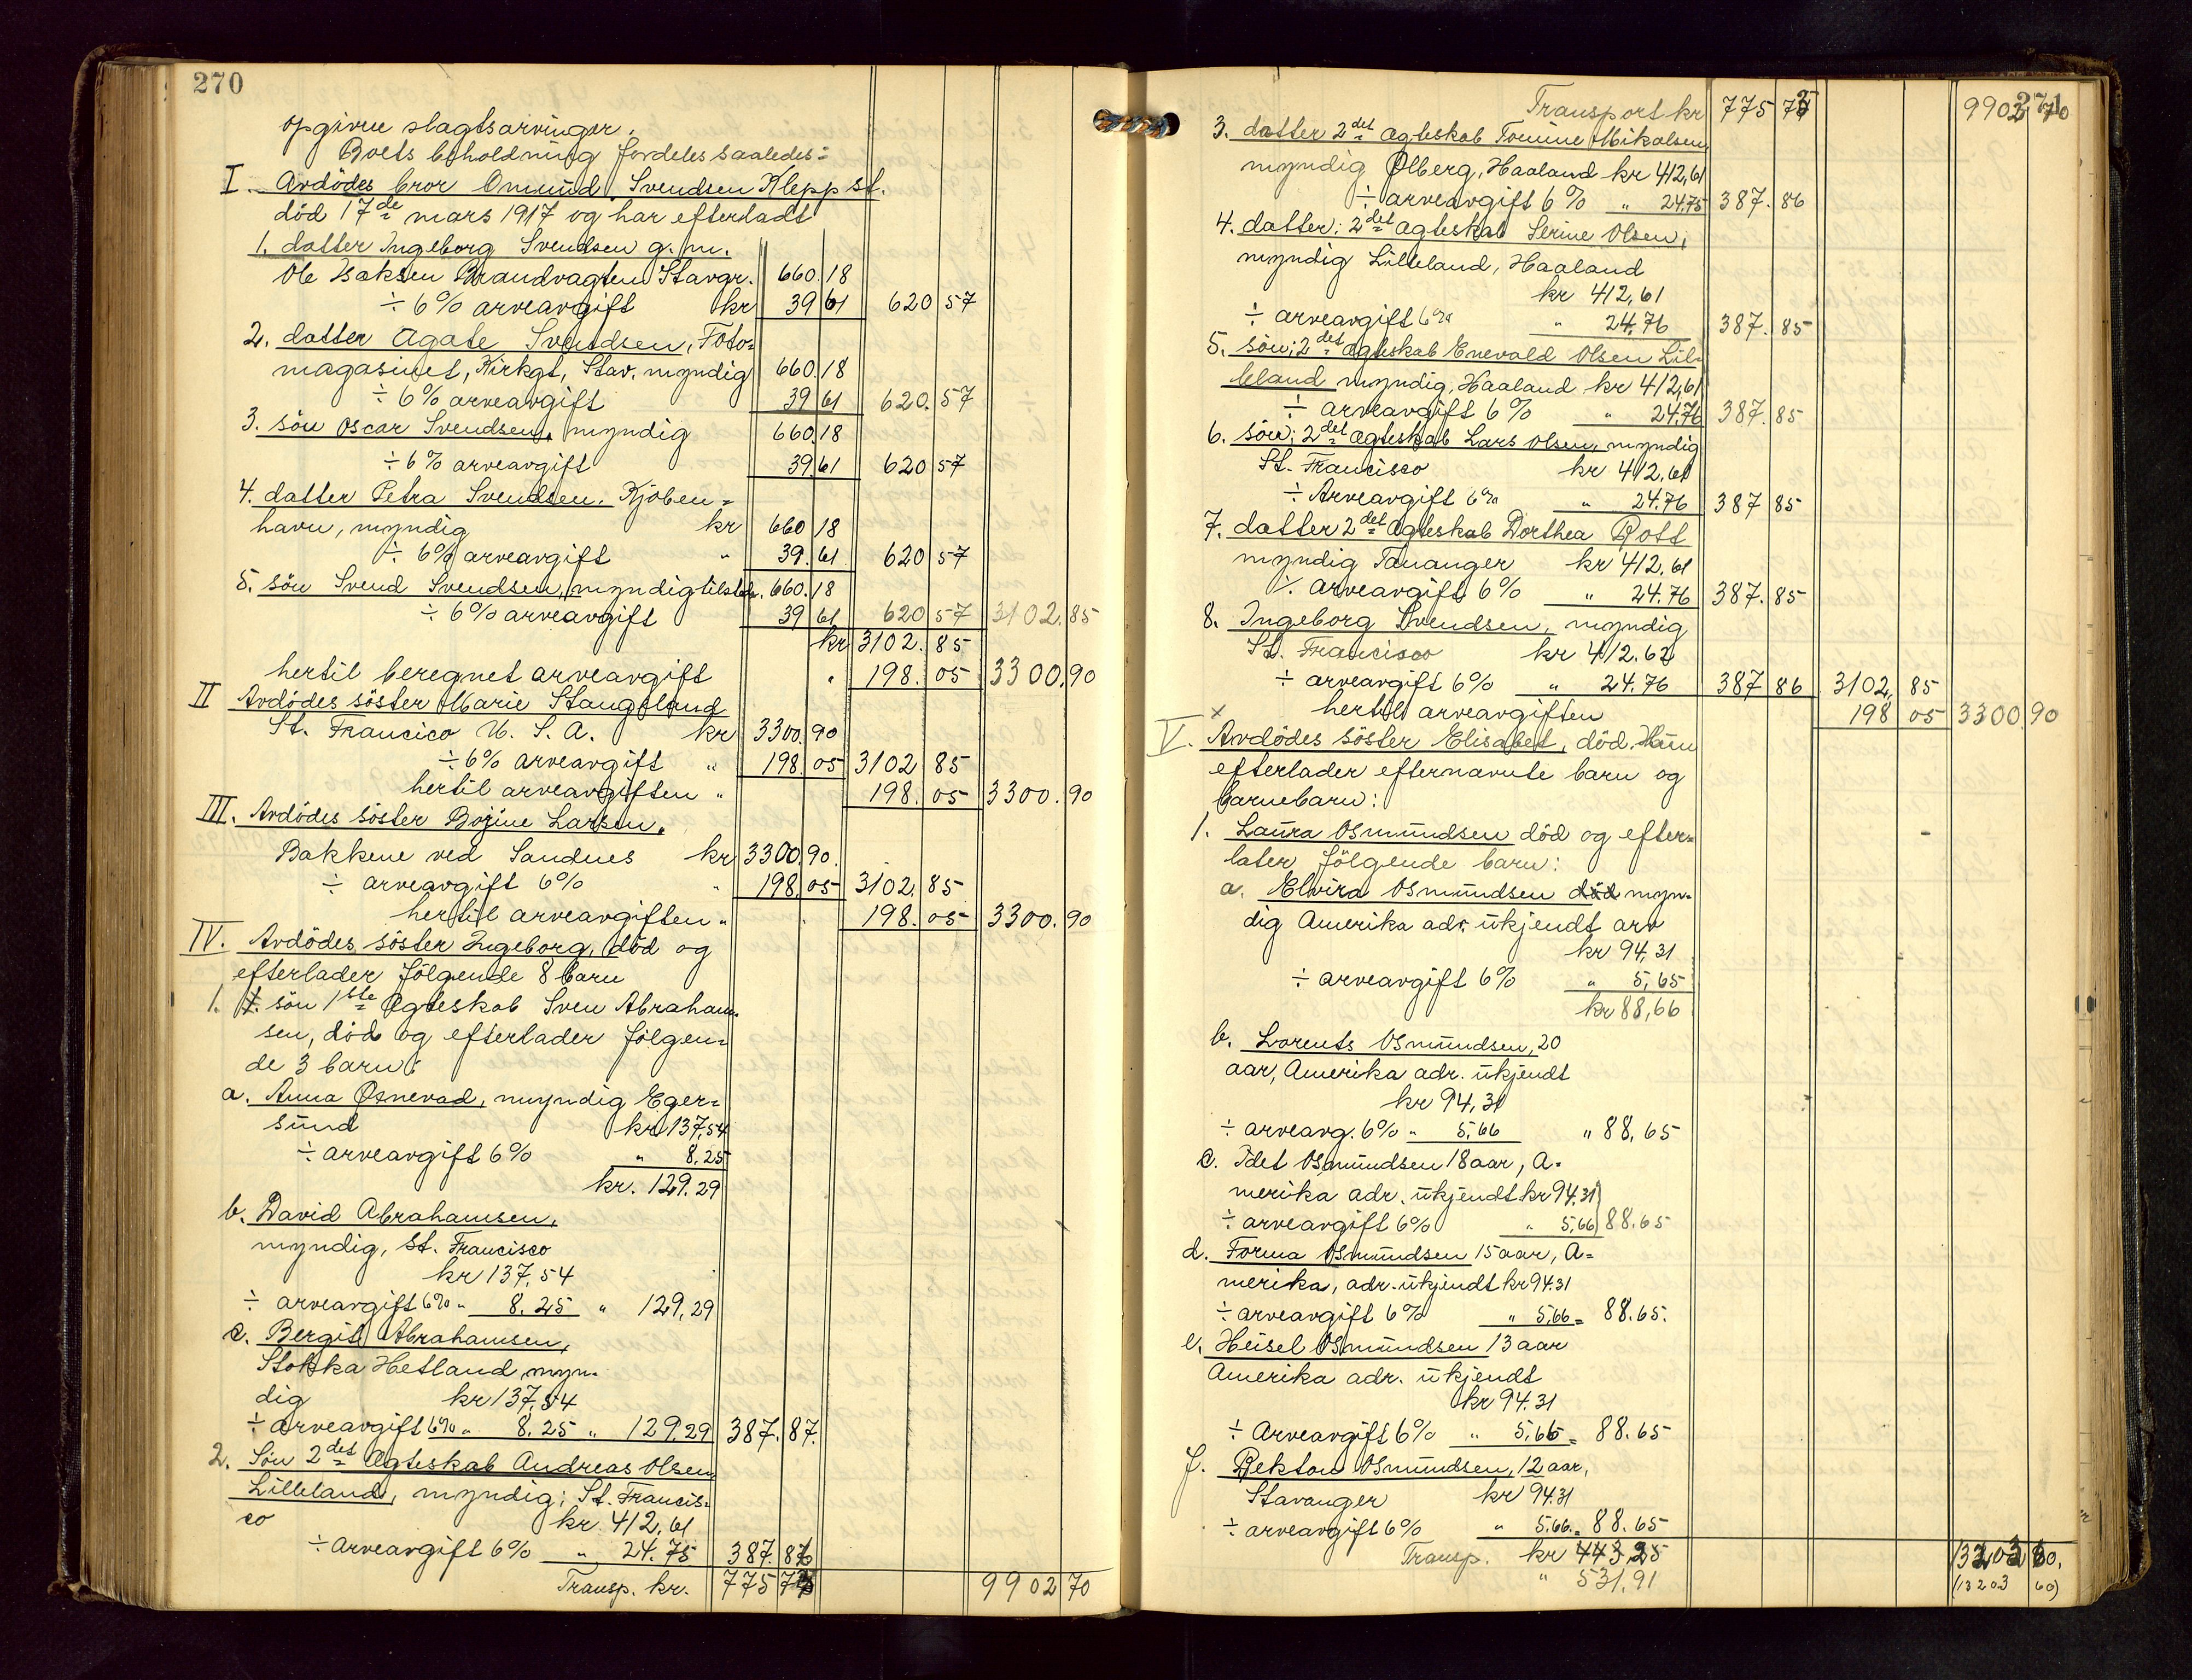 270
opgivne slagtsarvinger.
Boets beholdning fordeles saaledes:
I. Avdödes bror Omund Svendsen Klepp st.
död 17de mars 1917 og har efterladt
1. datter Ingeborg Svendsen g. m.
Ole Isaksen Brandvagten Stavgr. 660.18
÷ 6% arveavgift kr 39 61 620 57
2. datter Agate Svendsen, Foto=
magasinet, Kirkgt, Stav, myndig 660.18
÷ 6% arveavgift 39 61 620.57
3. sön Oscar Svendsen, myndig 660.18
÷ 6% arveavgift 39 61 620 57
4. datter Petra Svendsen. Kjöben=
havn, myndig kr 660 18
÷ 6% arveavgift " 39.61 620 57
5. sön Svend Svendsen, myndig tilsted. 660.18
÷ 6% arveavgift 39 61 620 57 3102.85
kr 3102.85
hertil beregnet arveavgift " 198.05 3300.90
II Avdödes söster Marie Stangeland
St. Francico U. S. A. kr 3300.90
÷ 6% arveavgift " 198.05 3102 85
hertil arveavgiften " 198.05 3300.90
III. Avdödes söster Bojine Larsen,
Bakkene ved Sandnes kr 3300.90.
÷ arveavgift 6% " 198.05 3102.85
hertil arveavgiften " 198.05 3300.90
IV. Avdödes söster Ingeborg, död og
efterlader fölgende 8 barn
1. sön 1ste Ægteskab Sven Abraham=
sen, död og efterlader fölgen=
de 3 barn:
a. Anna Osnevad, myndig Eger=
sund kr 137,54
÷ arveavgift 6% " 8.25
kr. 129.29
b. David Abrahamsen,
myndig, St. Francisco
kr 137,54
÷ arveavgift 6% " 8.25 " 129,29
c. Bergit Abrahamsen,
Stokka Hetland, myn=
dig kr 137,54
÷ arveavgift 6% " 8.25 " 129.29 387.87.
2. Sön 2det Ægteskab Andreas Olsen
Lilleland, myndig; St. Francis=
co kr. 412,61
÷ Arveavgift 6% " 24.75 387.86
Transp. kr. 775 73 9902 70
271
Transport kr 775 73 9902 70
3. datter 2det Ægteskab Tomine Mikalsen
myndig Ølberg, Haaland kr 412,61
÷ arveavgift 6% " 24.75 387.86
4. datter; 2det Ægteskab Serine Olsen;
myndig Lilleland, Haaland
kr 412,61
÷ arveavgift 6% " 24.76 387.85
5. sön; 2det Ægteskab Enevald Olsen Lil=
leland myndig, Haaland kr 412,61
÷ arveavgift 6% " 24.76 387.85
6. sön; 2det Ægteskab Lars Olsen, myndig
St. Francisco kr 412.61
÷ Arveavgift 6% " 24.76 387 85
7. datter 2det Ægteskab Dorthea Rott
myndig Tananger kr 412,61
÷ arveavgift 6% " 24.76 387.85
8. Ingeborg Svendsen, myndig
St. Francisco kr 412.62
÷ arveavgift 6% " 24.76 387 86 3102,85
hertil arveavgiften 198 05 3300.90
V. Avdödes söster Elisabet, död. Hun
efterlader efternævnte barn og
barnebarn:
1. Laura Osmundsen död og efter=
later fölgende barn:
a. Elvira Osmundsen död myn=
dig Amerika adr. ukjendt arv
kr 94,31
÷ arveavgift 6% " 5,65
kr 88,66
b. Lorents Osmundsen, 20
aar, Amerika adr. ukjendt
kr 94,31
÷ arveavg. 6% " 5,66 " 88,65
c. Idet Osmundsen 18 aar, A=
merika adr. ukjendt kr 94.31
÷ arveavgift 6% " 5,66 88.65
d. Forma Osmundsen 15 aar, A=
merika, adr. ukjendt kr 94.31
÷ arveavgift 6% " 5,66 = 88.65.
e. Heisel Osmundsen 13 aar
Amerika adr. ukjendt
kr 94.31
÷ Arveavgift 6% " 5,66 = 88.65
f. Rekton Osmundsen, 12 aar,
Stavanger kr 94.31
÷ arveavgift 6% " 5.66 = 88.65
Transp. kr 443,25 13203 60.
" 531,91 (13203 60)